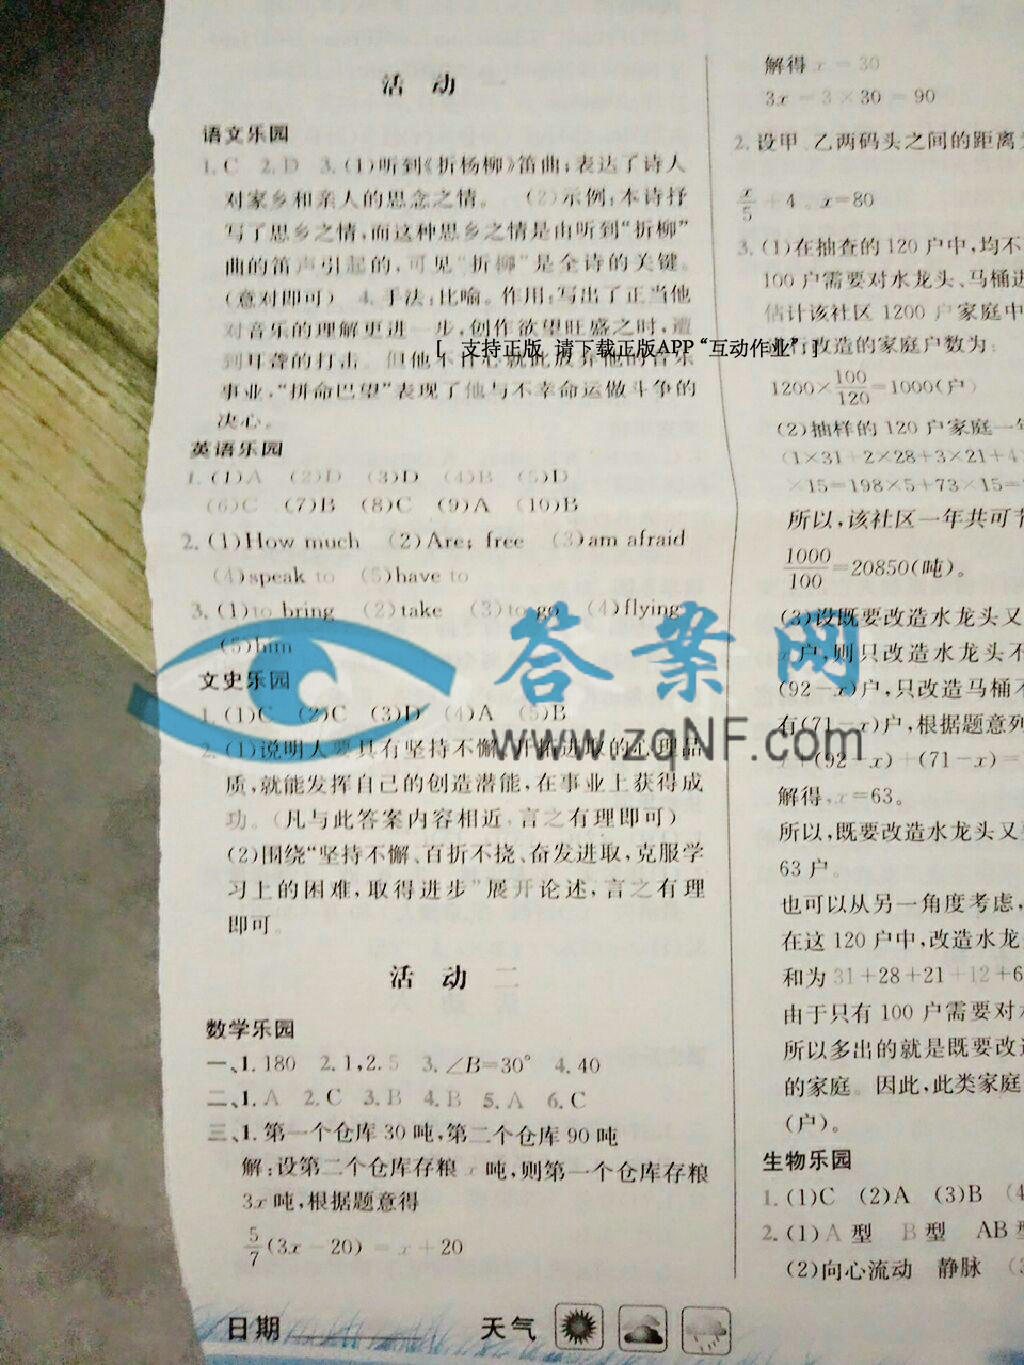 活 动 一
语文乐园
1. C 2. D 3. (1)听到《折杨柳》笛曲；表达了诗人
对家乡和亲人的思念之情。 (2)示例：本诗抒
写了思乡之情，而这种思乡之情是由听到“折柳”
曲的笛声引起的，可见“折柳”是全诗的关键。
(意对即可) 4. 手法：比喻。作用：写出了正当他
对音乐的理解更进一步，创作欲望旺盛之时，遭
到耳聋的打击。但他不甘心就此放弃他的音乐
[ 支持正版 请下载正版APP“互动作业” ]
事业，“拼命巴望”表现了他与不幸命运做斗争的
决心。
英语乐园
1. (1)A (2)D (3)D (4)B (5)D
(6)C (7)B (8)C (9)A (10)B
2. (1)How much (2)Are; free (3)am afraid
(4)speak to (5)have to
3. (1)to bring (2)take (3)to go (4)flying
(5)him
文史乐园
1. (1)C (2)C (3)D (4)A (5)B
2. (1)说明人要具有坚持不懈、开拓进取的心理品
质，就能发挥自己的创造潜能，在事业上获得成
功。(凡与此答案内容相近，言之有理即可)
(2)围绕“坚持不懈、百折不挠、奋发进取，克服学
习上的困难，取得进步”展开论述，言之有理
即可。
活 动 二
数学乐园
一、1. 180 2. 1,2.5 3. ∠B=30° 4. 40
二、1. A 2. C 3. B 4. B 5. A 6. C
三、1. 第一个仓库30吨，第二个仓库90吨
解：设第二个仓库存粮x吨，则第一个仓库存粮
3x吨，根据题意得
5/7(3x-20)=x+20
解得x=30
3x=3×30=90
2. 设甲、乙两码头之间的距离
x/5 +4。x=80
3. (1)在抽查的120户中，均不
100户需要对水龙头、马桶进
估计该社区1200户家庭中
行改造的家庭户数为：
1200×100/120=1000(户)
(2)抽样的120户家庭一年
(1×31+2×28+3×21+4
×15=198×5+73×15=
所以，该社区一年共可节
1000/100=20850(吨)。
(3)设既要改造水龙头又
x户，则只改造水龙头不
(92-x)户，只改造马桶不
有(71-x)户，根据题意列
x+(92-x)+(71-x)=
解得，x=63。
所以，既要改造水龙头又
63户。
也可以从另一角度考虑，
在这120户中，改造水龙
和为31+28+21+12+6
由于只有100户需要对水
所以多出的就是既要改造
的家庭。因此，此类家庭
(户)。
生物乐园
1. (1)C (2)A (3)B (4
2. (1)A型 B型 AB型
(2)向心流动 静脉 (3
日期 天气
答案网
www.zqNF.com